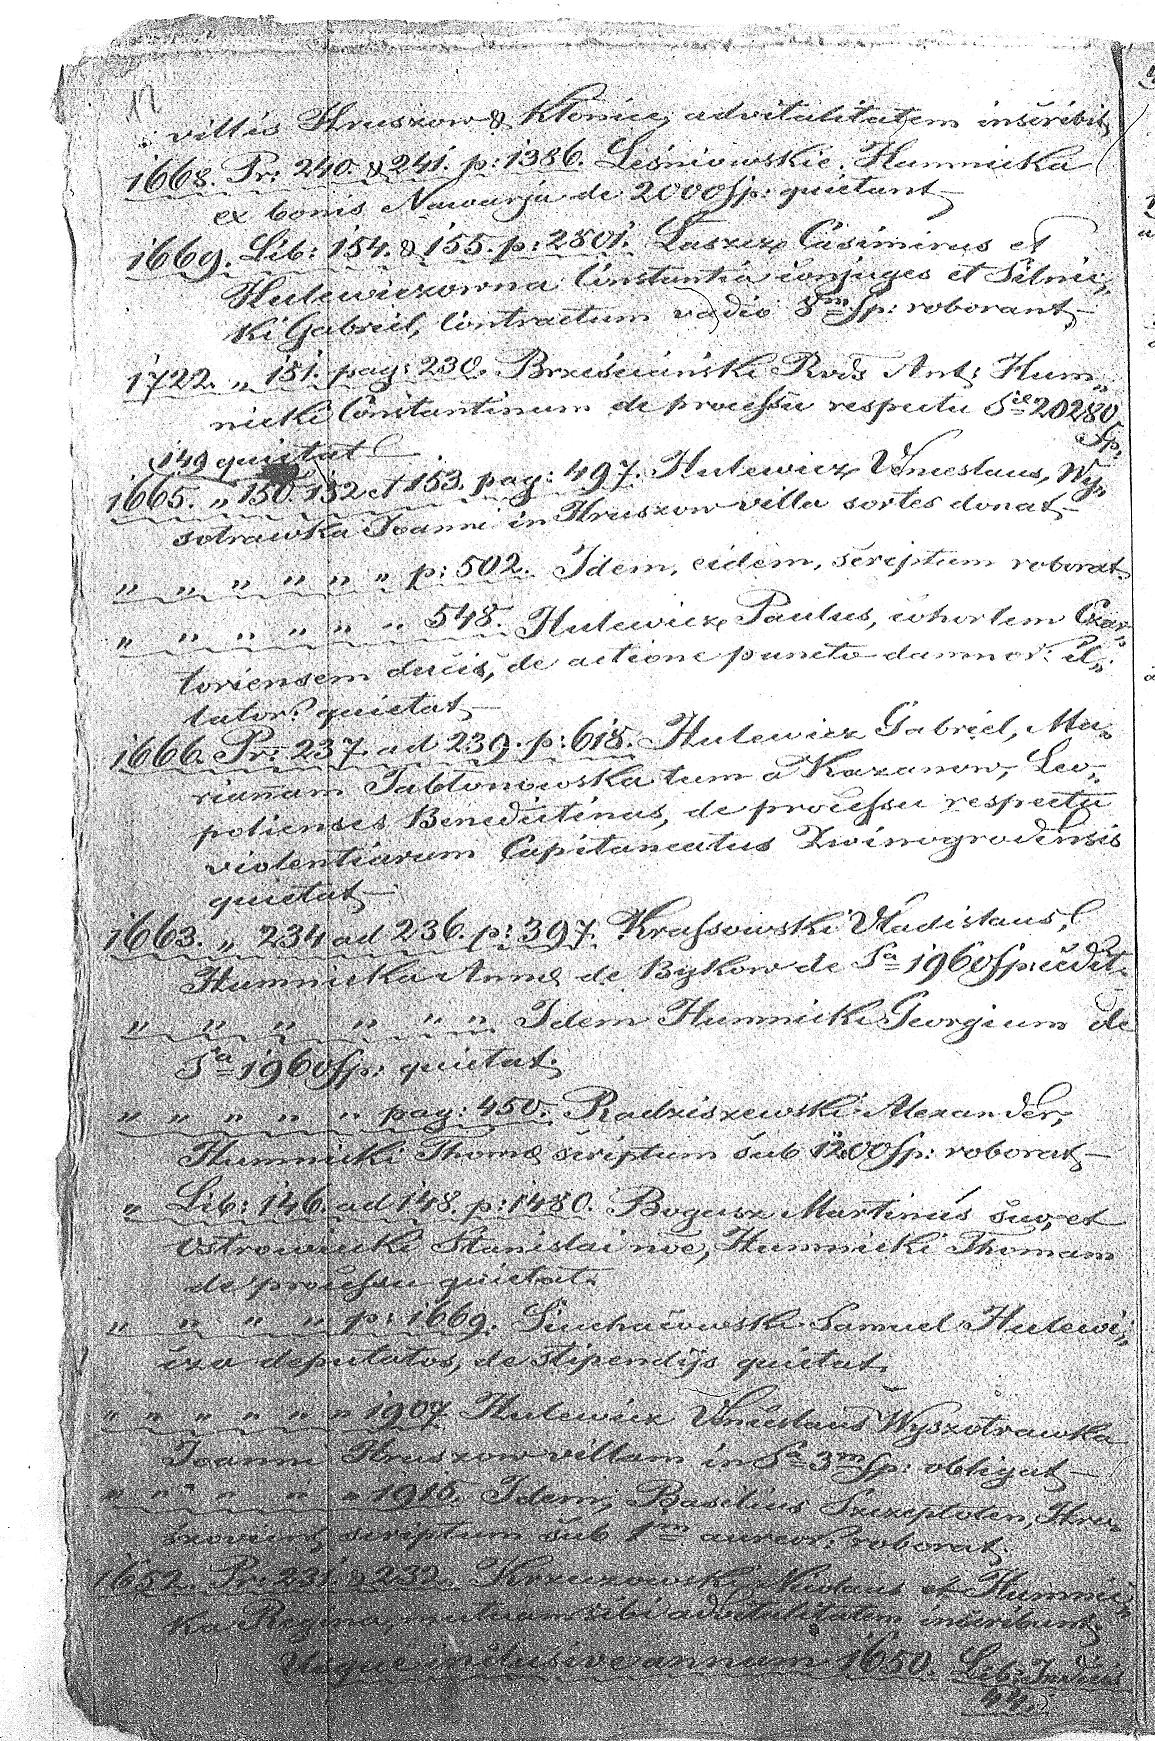 12
villis Hruszow & Kłonice, advitalitatem inscribit,
1668. Pr: 240. & 241. p: 1386. Leśniowskie. Humnicka
ex bonis Nawarja de 2000 fp: quietant
1669. Lib: 154. & 155. p: 2801. Łaszcz Casimirus et
Hulewiczowna Constantia conjuges et Silnic„
ki Gabriel, Contractum vadio 8m fp: roborant,
1722. „ 181. pag: 230. Brześciański Rvds Ant: Hum„
nicki Constantinum de processu respectu 20280
fp,
149 quietat
1665. „ 150. 152 et 153. pag: 497. Hulewicz Venceslaus, Wy„
sotrawka Joanni in Hruszow villa sortes donat,
„ „ „ „ „ „ p: 502. Idem, eidem, scriptum roborat.
„ „ „ „ „ „ 548. Hulewicz Paulus, cohortem Czar„
toriensem ducis, de actione puncto damnor: il„
lator: quietat,
1666. Pr: 237. ad 239. p: 618. Hulewicz Gabriel, Ma„
riannam Jabłonowska tum a Kazanow, Leo„
polienses Benedictinas, de processu respectu
violentiarum Capitaneatus Zwinogrodensis
quietat,
1663. „ 234 ad 236. p: 397. Krassowski Vladislaus,
Humnicka Anna de Bykow de Sa 1960 fp: cedit.
„ „ „ „ „ „ Idem Humnicki Georgium de
Sa 1960 fp: quietat.
„ „ „ „ „ pag: 450. Radziszewski Alexander,
Humnicki Thoma scriptum sub 1200 fp: roborat,
„ Lib: 146. ad 148. p: 1480. Bogusz Martinus suo, et
Ostrowicki Stanislai noe, Humnicki Thomam
de processu quietat.
„ „ „ „ p: 1669. Suchaczowski Samuel Hulewi„
cza deputatos, de stipendijs quietat,
„ „ „ „ „ „ 1907 Hulewicz Venceslaus Wyszotrawka
Joanni Hruszow villam in Sa 3m fp: obligat,
„ „ „ „ „ „ 1915. Idem, Basilius Szczeptoten, Hru„
scriptum sub 1m aureor: roborat.
1652. Pr: 231. & 232. Krzuczowski Nicolaus et Humnic„
ka Regina, mutuam sibi advitalitatem inscribunt.
Usque inclusive annum 1650. Lib: Indicis
44.